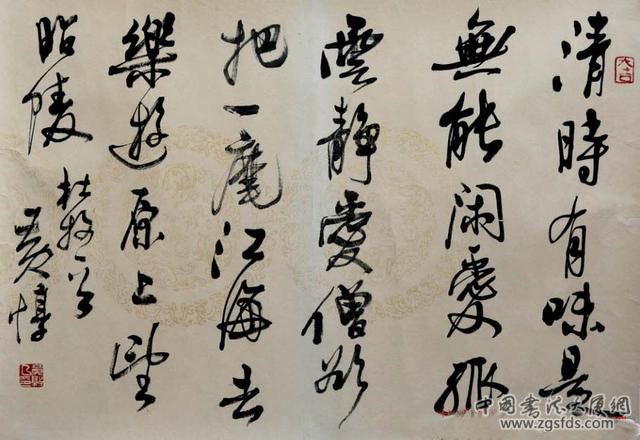 清時有味是
無能闲愛孤
雲靜愛僧欲
把一麾江海去
樂遊原上望
昭陵
杜牧
黄惇
中国书法大厦网
www.zgsfds.com